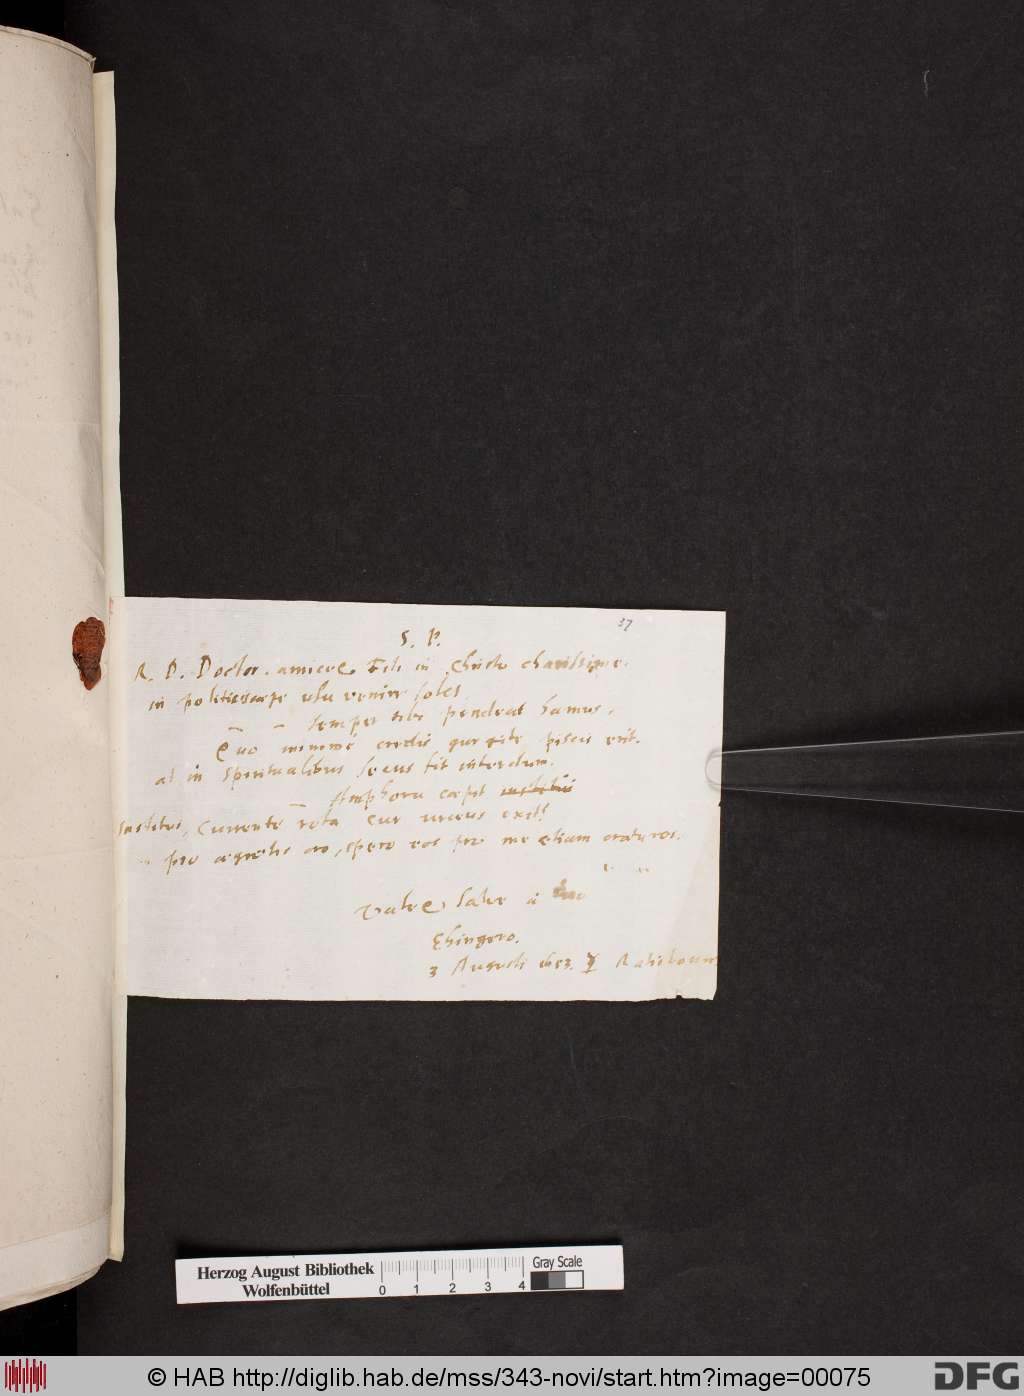 37
S. P.
R. D. Doctor. amice & Fili in Christo charissime.
in politicis saepe usu venire soles
semper tibi pendeat hamus,
Quo minimè credis gurgite piscis erit.
at in spiritualibus secus fit interdum.
Amphora coepit institui
Institui, Currente rota cur urceus exit?
pro aegrotis oro, spero eos pro me etiam oraturos.
Vale & salve à tuo
Ehingero.
3 Augusti 1653. Ratisbonae
Herzog August Bibliothek
Wolfenbüttel
0 1 2 3 4
Gray Scale
© HAB http://diglib.hab.de/mss/343-novi/start.htm?image=00075
DFG